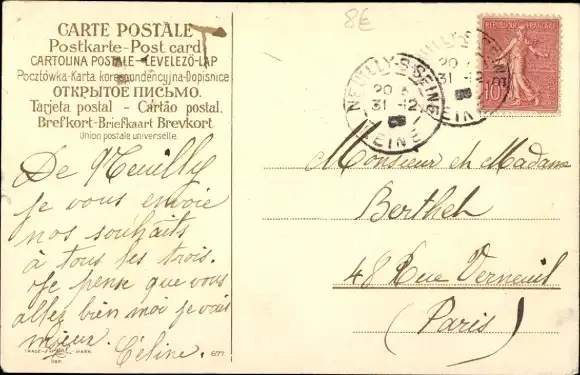 8€
CARTE POSTALE
Postkarte-Post card
CARTOLINA POSTALE-LEVELEZŐ-LAP
Pocztówka-Karta korespondencyjna-Dopisnice
ОТКРЫТОЕ ПИСЬМО.
Tarjeta postal - Cartão postal.
Brefkort-Briefkaart Brevkort
Union postale universelle.
NEUILLY-S-SEINE
20
31 -12
SEINE
10
De Neuilly
je vous envoie
nos souhaits
à tous les trois.
Je pense que vous
allez bien moi je vais
mieux.
Céline.
TRADE MARK
677
Monsieur et Madame
Berthet
48 Rue Verneuil
(Paris)